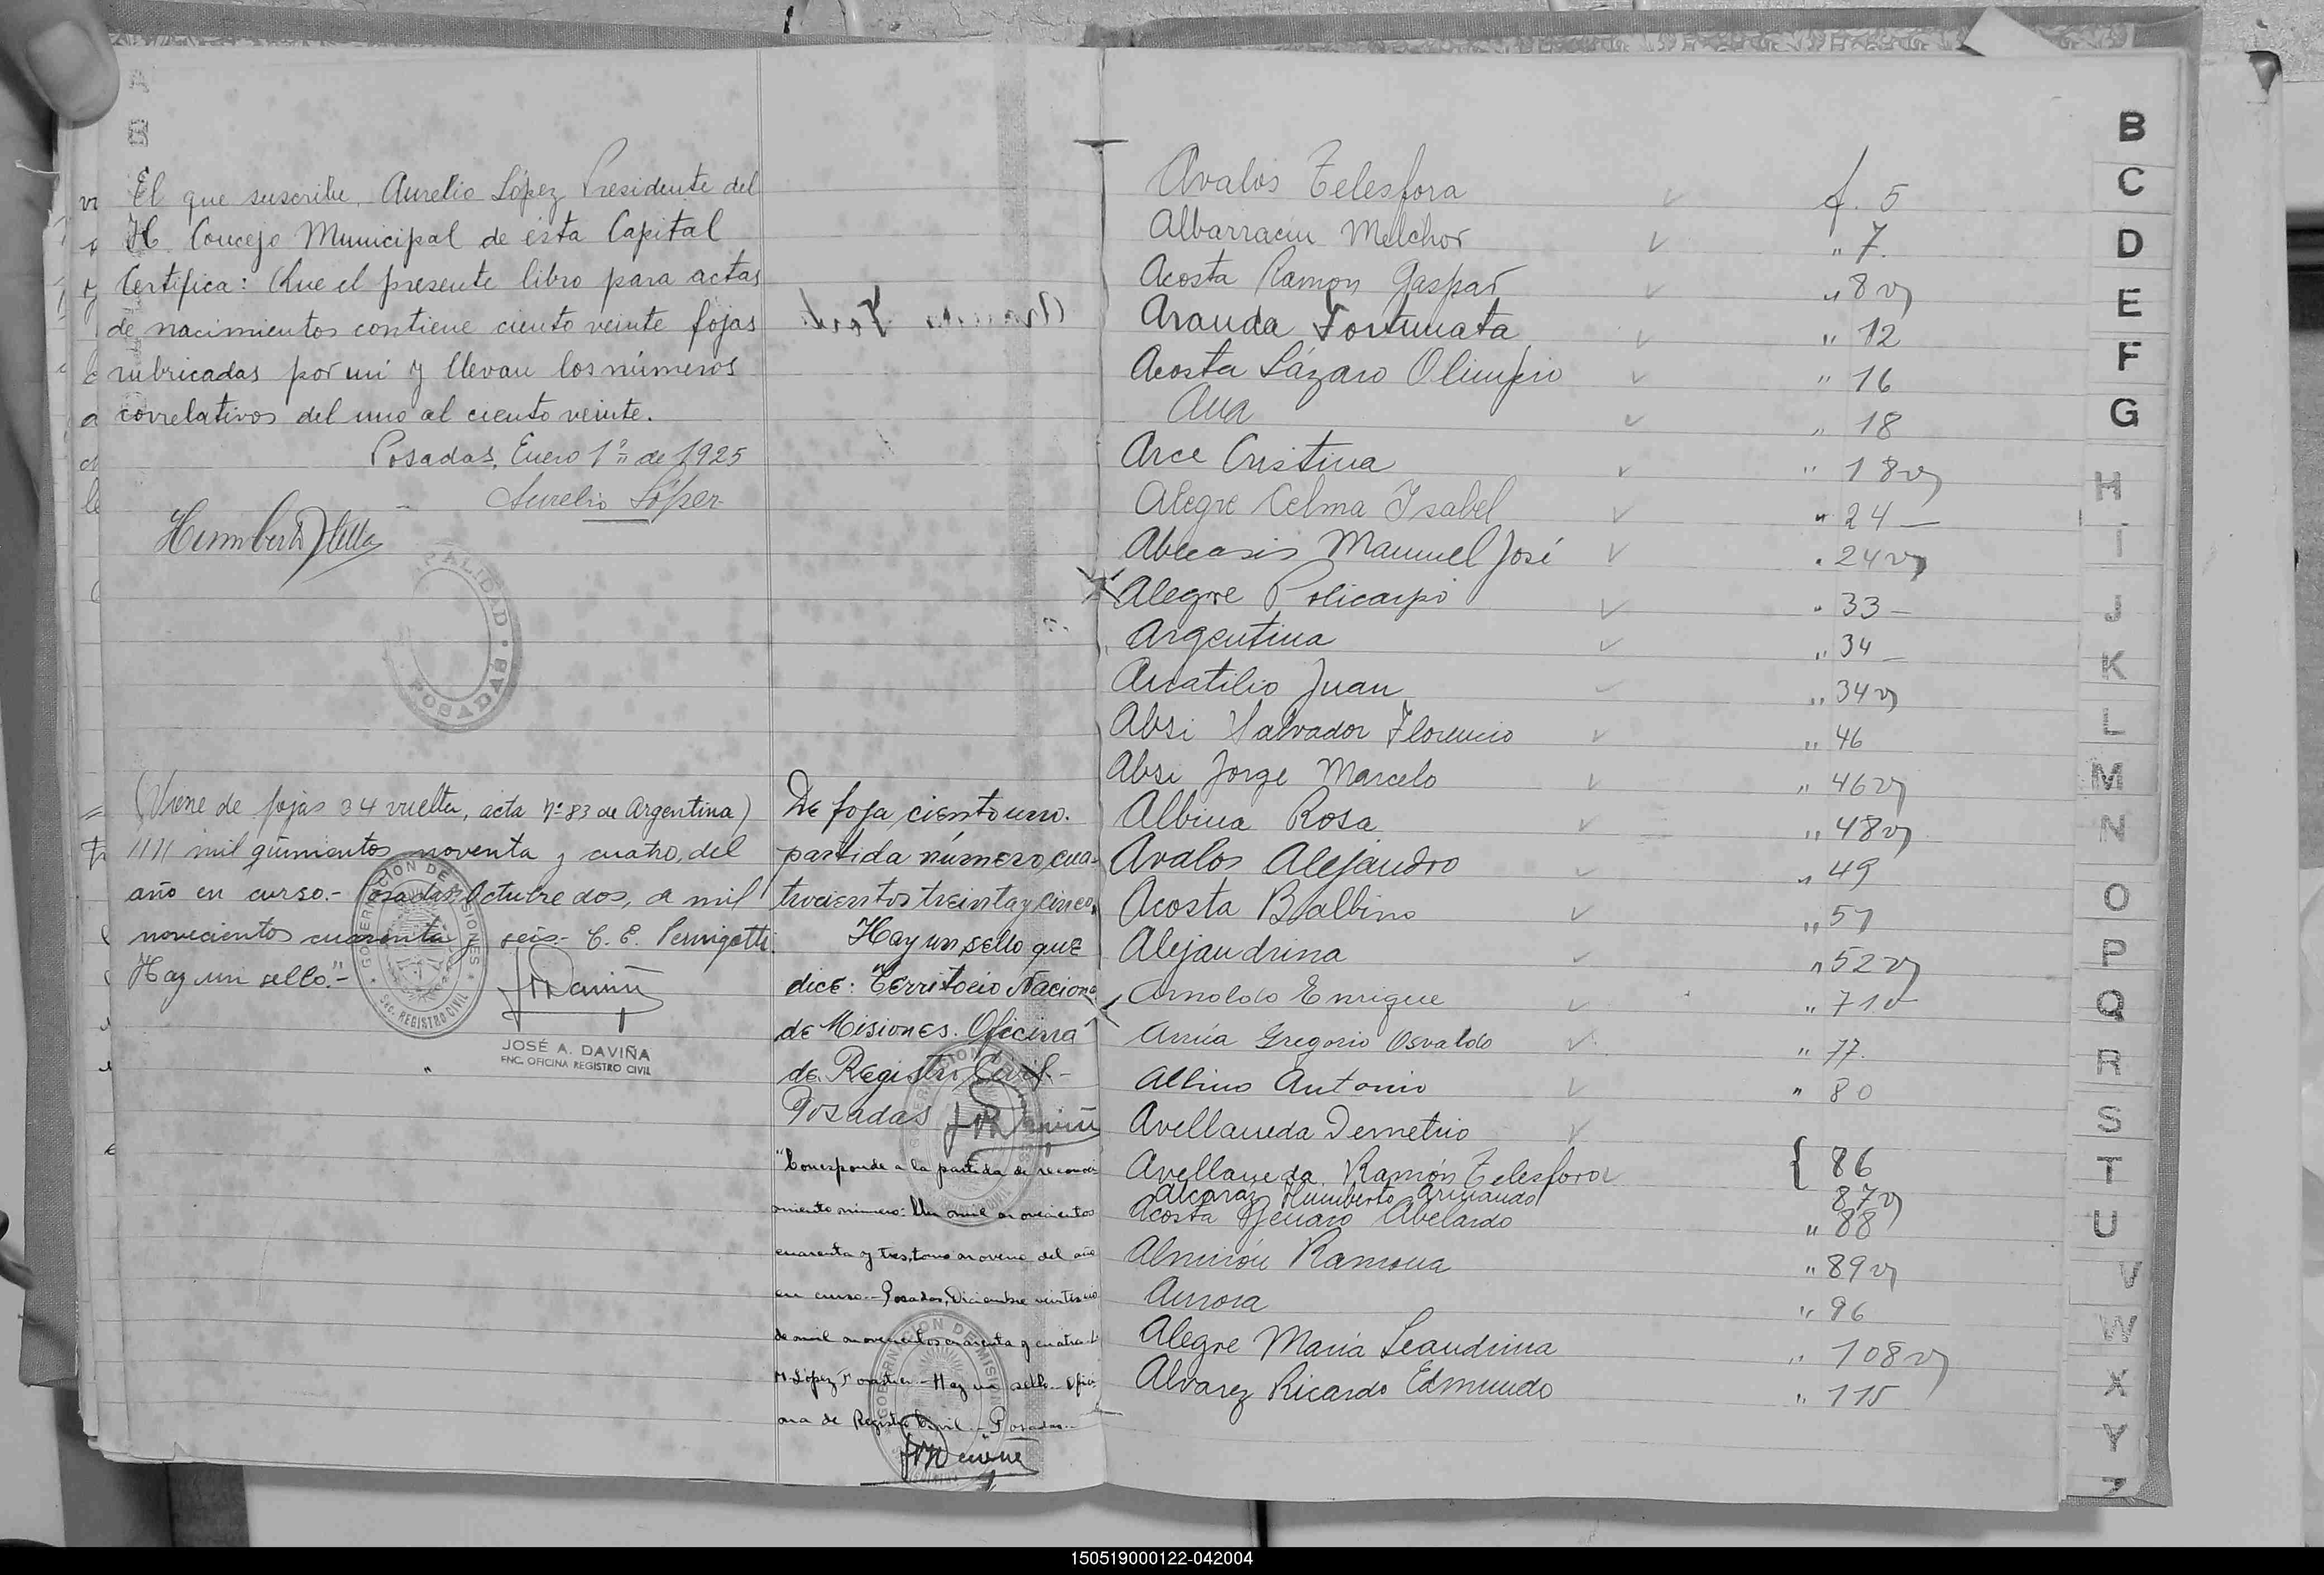 El que suscribe, Aurelio López Presidente del
H. Concejo Municipal de esta Capital
Certifica: Que el presente libro para actas
de nacimientos contiene ciento veinte fojas
rubricadas por mi y llevan los números
correlativos del uno al ciento veinte.
Posadas, Enero 1º de 1925
Aurelio López
PALIDAD • POSADAS
(Viene de fojas 34 vuelta, acta Nº 83 de Argentina)
mil quinientos noventa y cuatro, del
año en curso.- Posadas, Octubre dos, de mil
novecientos cuarenta y seis.- C. E. Pernigotti.
Hay un sello".-
GOBERNACION DE MISIONES
SEC. REGISTRO CIVIL
JOSÉ A. DAVIÑA
ENC. OFICINA REGISTRO CIVIL
De foja ciento uno.
partida número cua-
trocientos treinta y cinco,
Hay un sello que
dice: "Territorio Naciona
de Misiones. Oficina
de Registro Civil-
Posadas
"Corresponde a la partida de reconoci
miento número: Un mil novecientos
cuarenta y tres, tomo noveno del año
en curso.- Posadas, Diciembre
de mil novecientos cuarenta y cuatro.-
M López Forastier - Hay un sello - Ofici-
na de Registro Civil - Posadas.-
GOBERNACION DE MISIONES
Avalos Telesfora f. 5
Albarracin Melchor " 7.
Acosta Ramon Gaspar " 8 v
Aranda Fortunata " 12
Acosta Lázaro Olimpio " 16
Ana " 18
Arce Cristina " 18 v
Alegre Celma Ysabel " 24 —
Abecasis Manuel José " 24 v
Alegre Policarpo " 33 —
Argentina " 34 —
Juan " 34 v
Absi Salvador Florencio " 46
Absi Jorge Marcelo " 46 v
Albina Rosa " 48 v
Avalos Alejandro " 49
Acosta Balbino " 51
Alejandrina " 52 v
Arnoldo Enrique " 71 v
Gregorio Osvaldo " 77.
Albino Antonio " 80
Avellaneda Demetrio
Avellaneda Ramón Telesforo { 86
Alcaraz Humberto Armando 87 v
Acosta Genaro Abelardo " 88
Almirón Ramona " 89 v
Aurora " 96
Alegre María Leandrina " 108 v
Alvarez Ricardo Edmundo " 115
A
B
B
C
D
E
F
G
H
I
J
K
L
M
N
O
P
Q
R
S
T
U
V
W
X
Y
Z
150519000122-042004